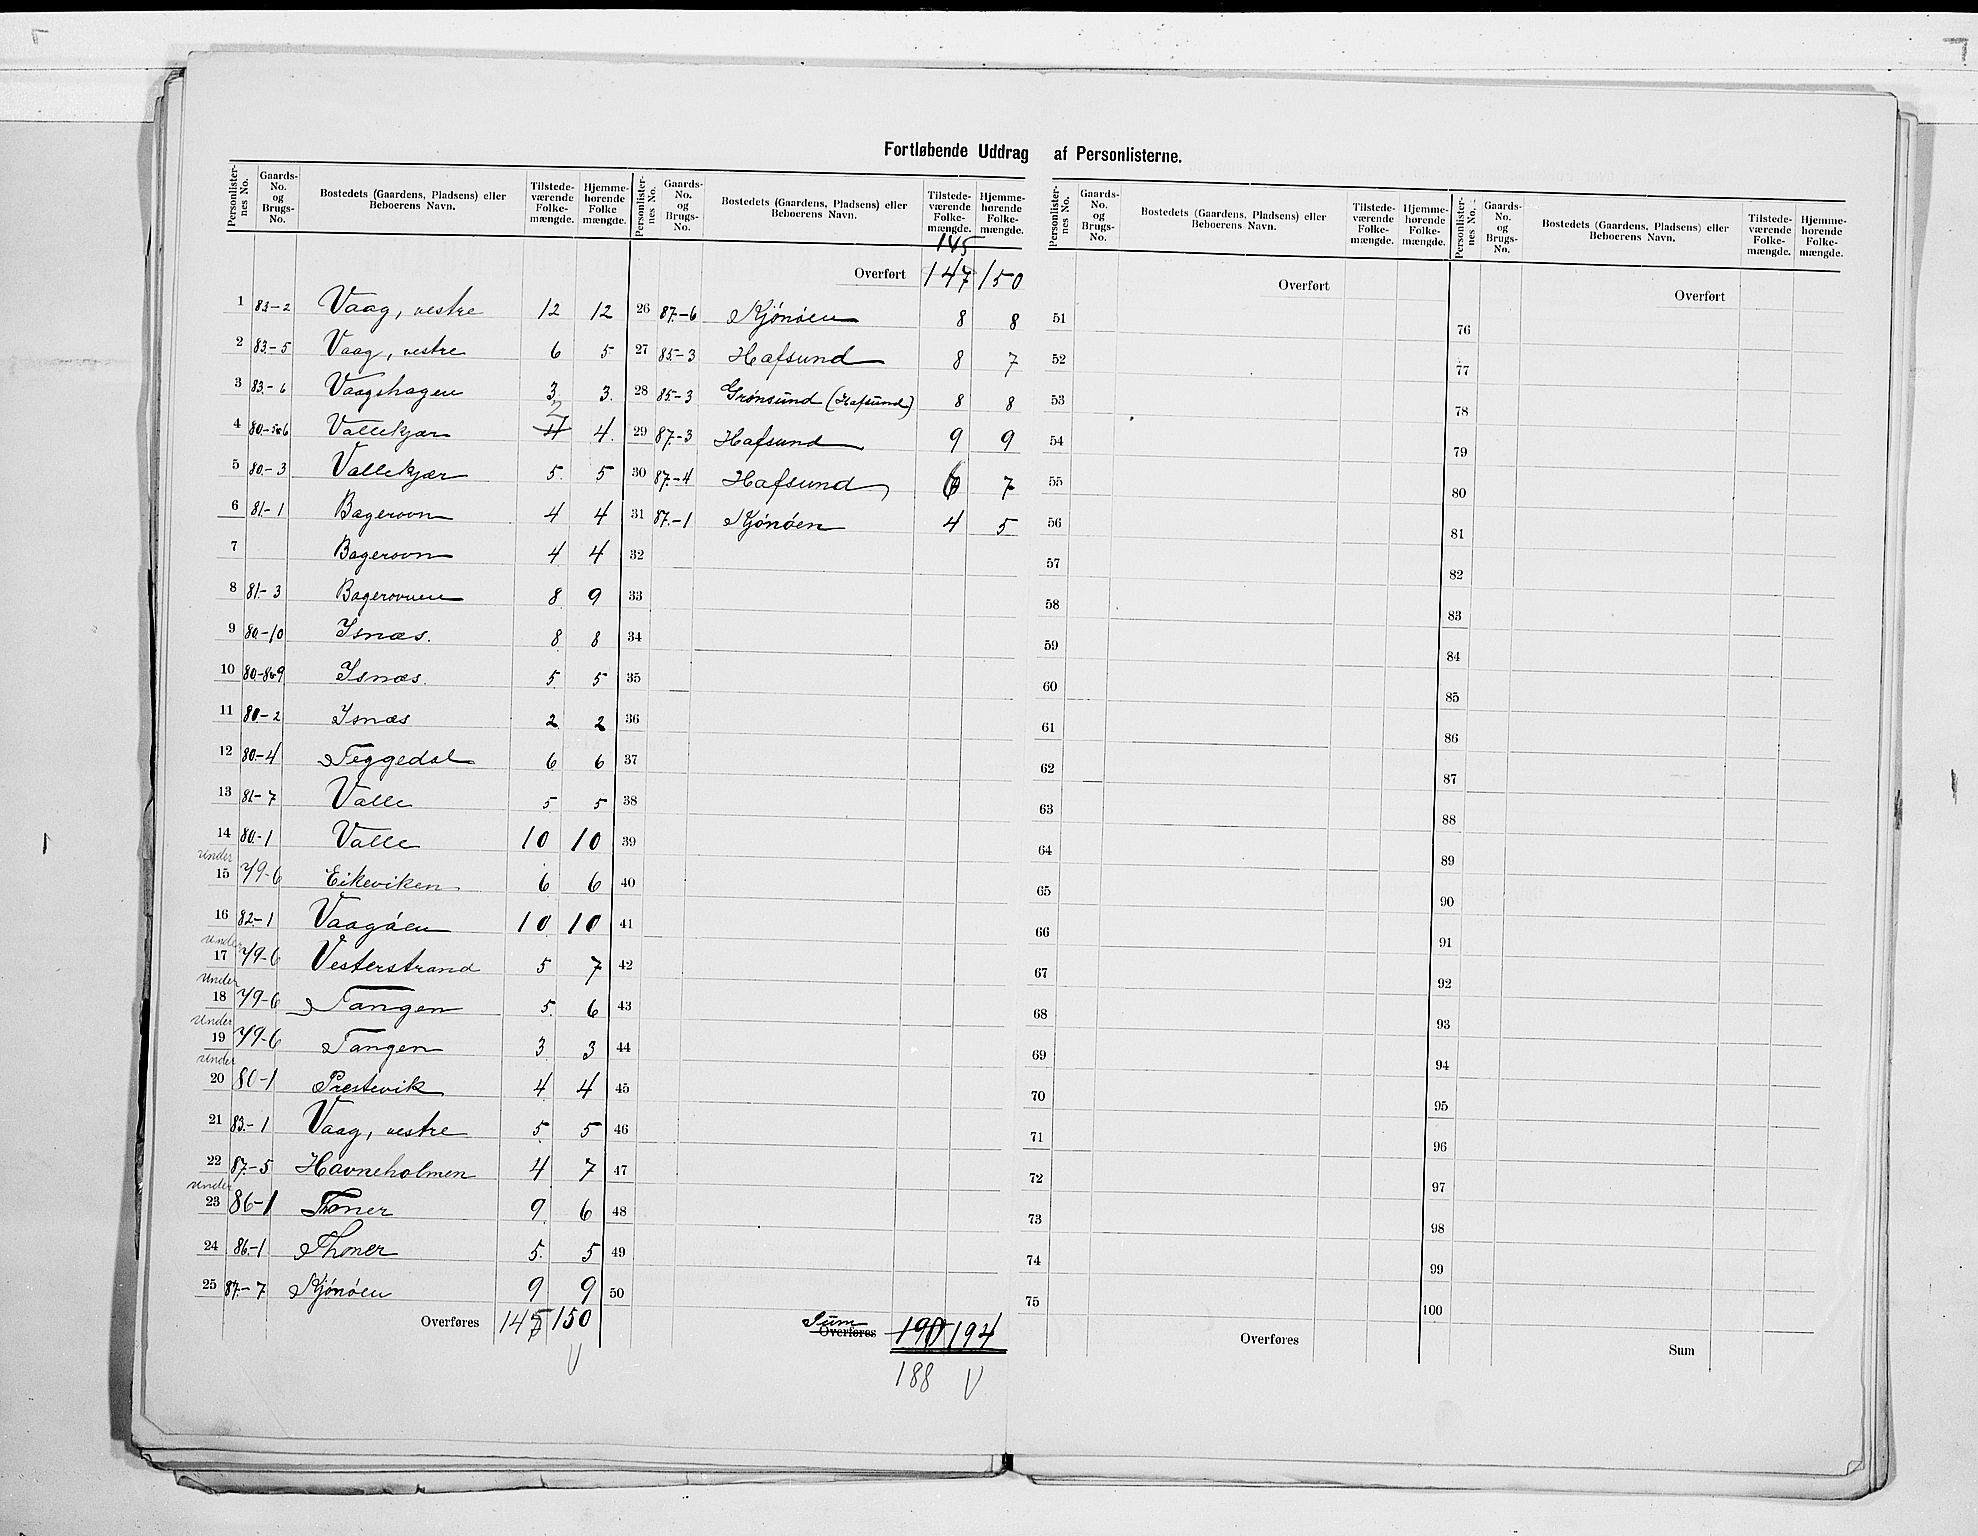 Fortløbende Uddrag af Personlisterne.
Personlister-nes No. | Gaards-No. og Brugs-No. | Bostedets (Gaardens, Pladsens) eller Beboerens Navn. | Tilstede-værende Folke-mængde. | Hjemme-hørende Folke mængde.
1 83.-2 Vaag, vestre 12 12
2 83.-5 Vaag, vestre 6 5
3 83.-6 Vaagshagen 3 3.
4 80.-5&6 Vallekjær 4 2 4.
5 80.-3 Vallekjær 5. 5
6 81.-1 Bagerovn 4 4
7 Bagerovn 4 4
8 81.-3 Bagerovnen 8 9
9 80.-10 Isnæs. 8 8
10 80.-8&9 Isnæs. 5. 5
11 80.-2 Isnæs 2 2
12 80.-4 Teggedal 6 6
13 81.-7 Valle 5 5
14 80.-1 Valle 10 10
under
15 79-6 Eikeviken 6 6
16 82.-1 Vaagøen 10 10
under
17 79-6 Vesterstrand 5 7
under
18 79-6 Tangen 5. 6
under
19 79-6 Tangen 3 3
under
20 80-1 Prestevik 4 4
21 83.-1 Vaag, vestre 5 5
22 87.-5 Havneholmen 4 7
under
23 86-1 Toner 9 6
24 86.-1 Thoner 5. 5
25 87.-7 Kjönöen 9 9
Overføres 145 150
V
Personlister-nes No. | Gaards-No. og Brugs-No. | Bostedets (Gaardens, Pladsens) eller Beboerens Navn. | Tilstede-værende Folke-mængde. | Hjemme-hørende Folke-mængde.
145
Overført 147 150
26 87.-6 Kjönöen 8 8
27 85.-3 Hafsund 8 7
28 85.-3 Grönsund (Hafsund) 8 8
29 87.-3 Hafsund 9 9
30 87.-4 Hafsund 6 7
31 87.-1 Kjönöen 4 5
32
33
34
35
36
37
38
39
40
41
42
43
44
45
46
47
48
49
50
Sum Overføres 190 194
188 V
Personlister-nes No. | Gaards-No. og Brugs-No. | Bostedets (Gaardens, Pladsens) eller Beboerens Navn. | Tilstede-værende Folke-mængde. | Hjemme-hørende Folke-mængde.
Overført
51
52
53
54
55
56
57
58
59
60
61
62
63
64
65
66
67
68
69
70
71
72
73
74
75
Overføres
Personlister-nes No. | Gaards-No. og Brugs-No. | Bostedets (Gaardens, Pladsens) eller Beboerens Navn. | Tilstede-værende Folke-mængde. | Hjemme-hørende Folke-mængde.
Overført
76
77
78
79
80
81
82
83
84
85
86
87
88
89
90
91
92
93
94
95
96
97
98
99
100
Sum